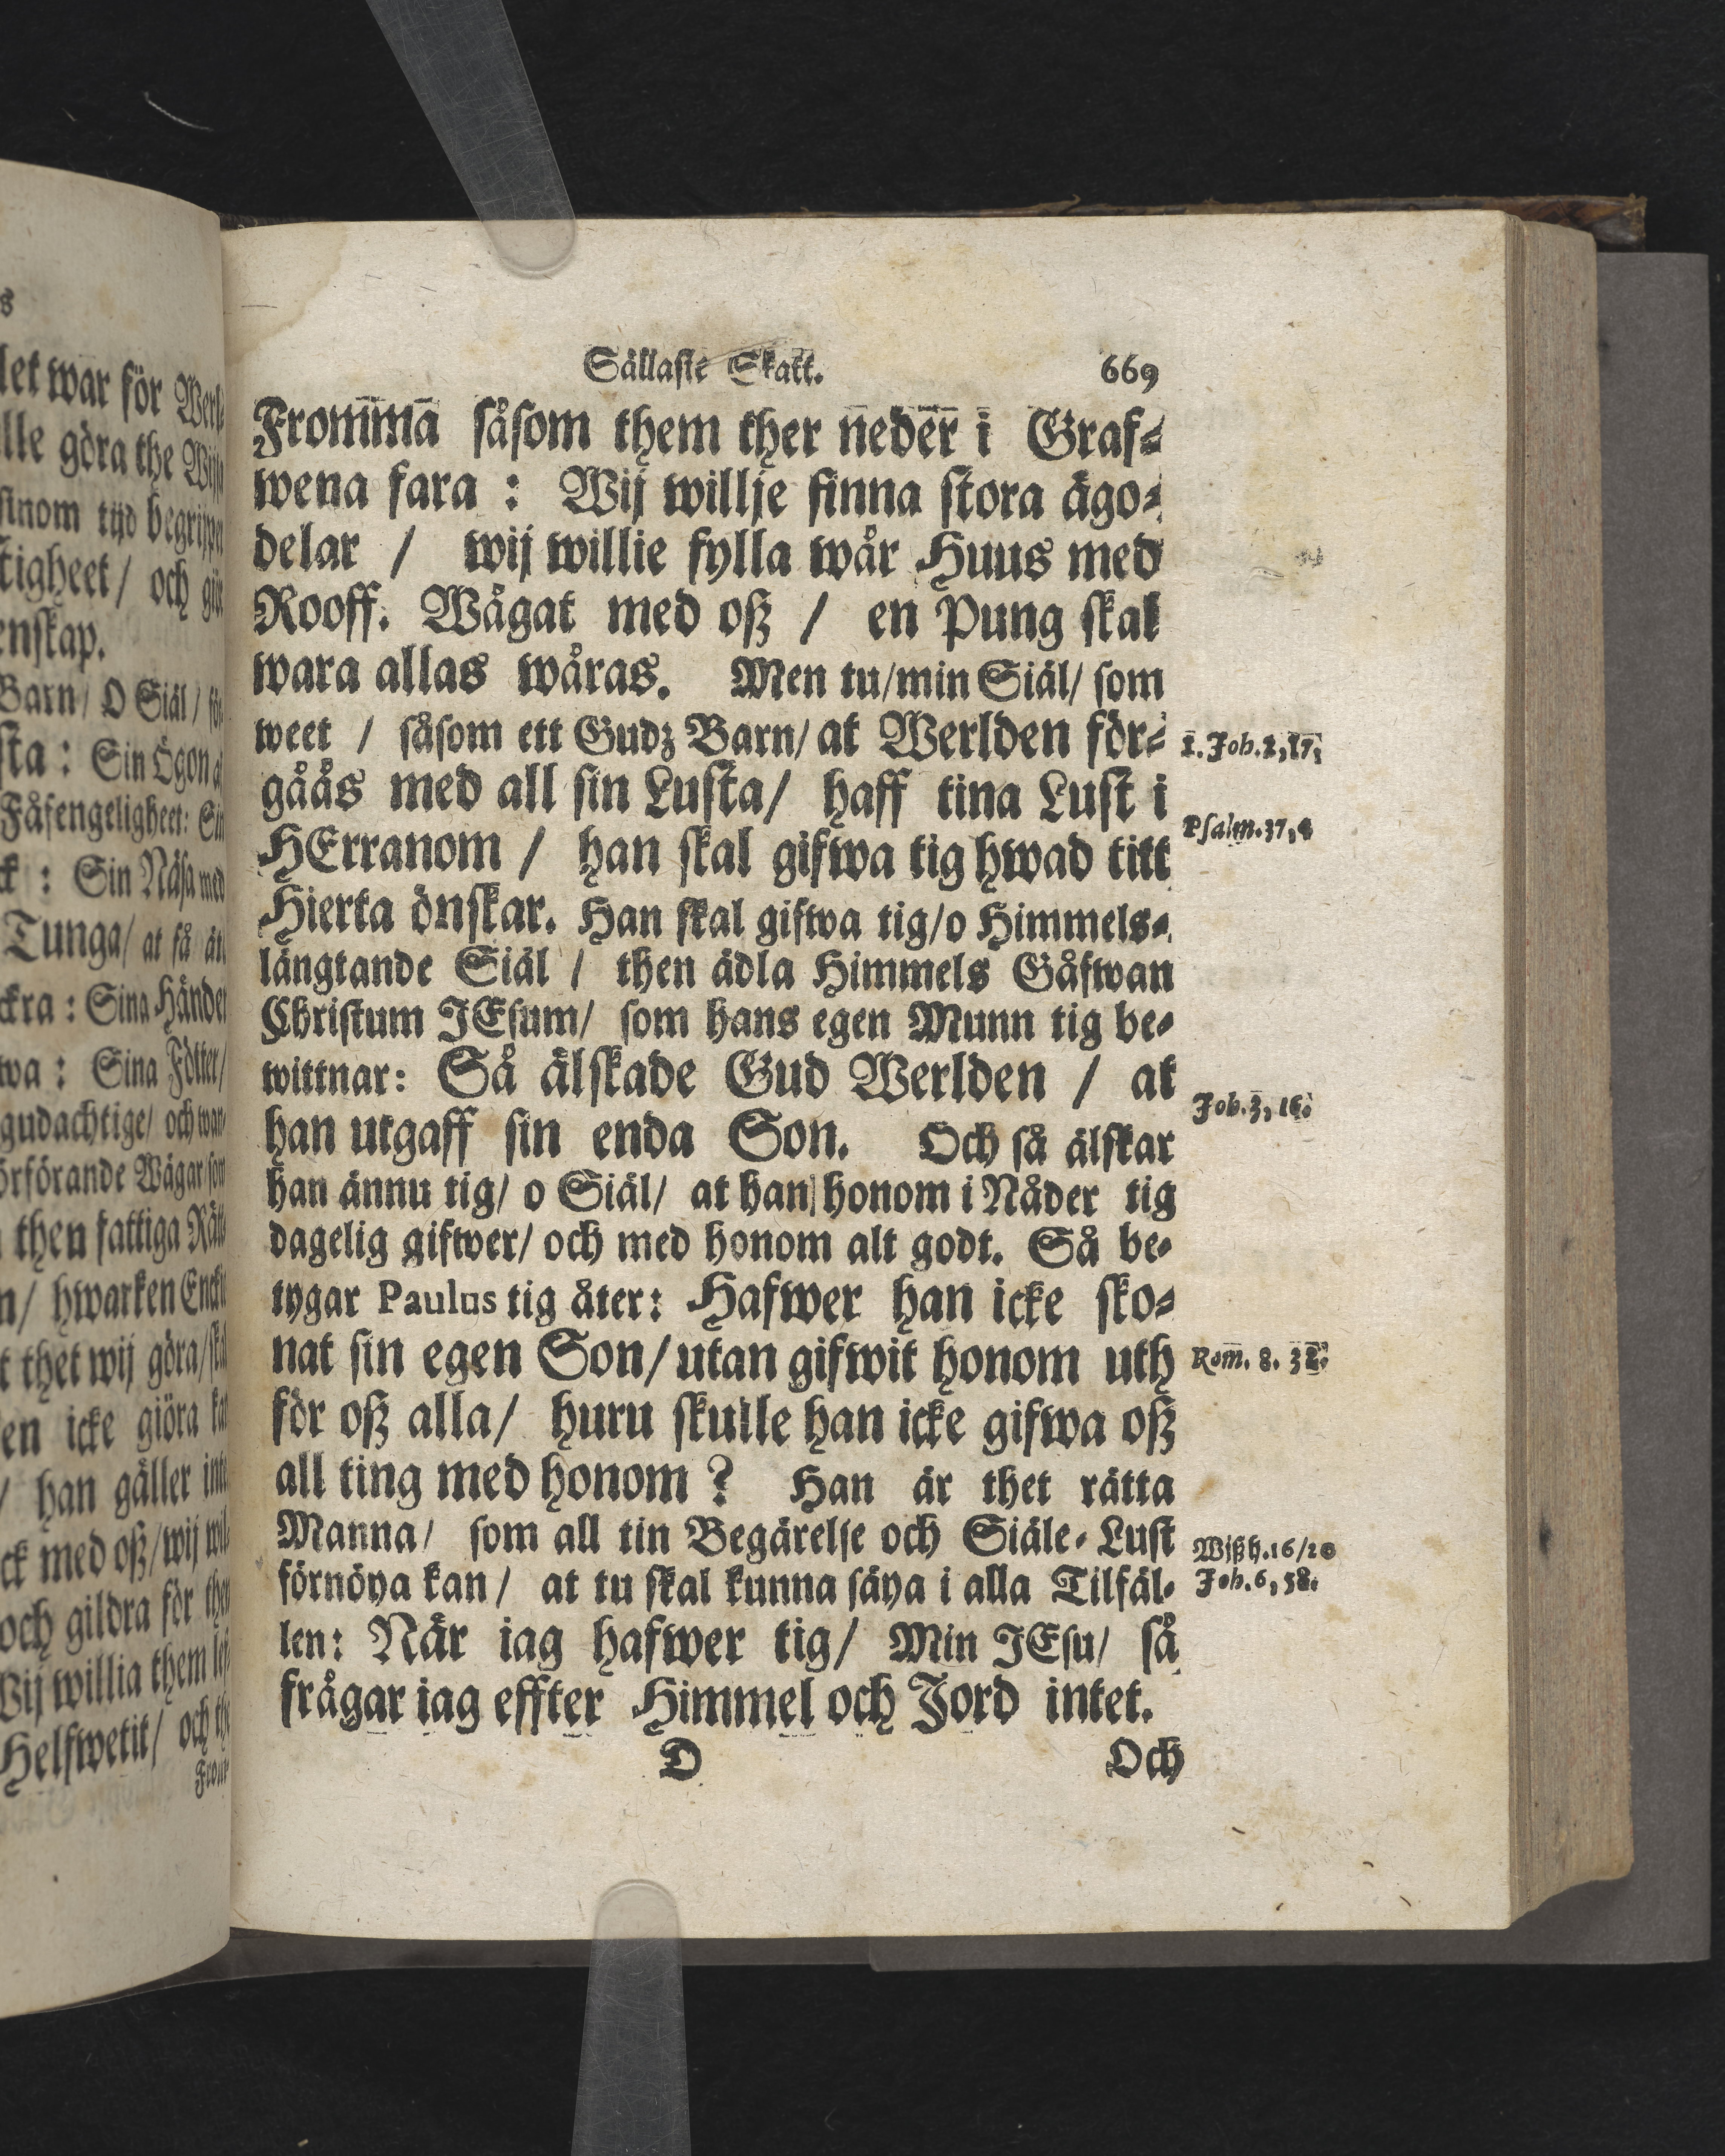 Sällaste Skatt. 669
Fromma såsom them ther neder i Graf-
wena fara : Wij willje finna stora ägo-
delar / wij willie fylla wår Huus med
Rooff. Wågat med oß / en Pung skal
wara allas wåras. Men tu/min Siäl/ som
weet / såsom ett Gudz Barn/ at Werlden för-
gåås med all sin Lusta/ haff tina Lust i
HErranom / han skal gifwa tig hwad titt
Hierta önskar. Han skal gifwa tig/o Himmels-
längtande Siäl / then ädla Himmels Gåfwan
Christum JEsum/ som hans egen Munn tig be-
wittnar: Så älskade Gud Werlden / at
han utgaff sin enda Son. Och så älskar
han ännu tig/ o Siäl/ at han honom i Nåder tig
dagelig gifwer/ och med honom alt godt. Så be-
tygar Paulus tig åter: Hafwer han icke sko-
nat sin egen Son/utan gifwit honom uth
för oß alla/ huru skulle han icke gifwa oß
all ting med honom ? Han är thet rätta
Manna/ som all tin Begärelse och Siäle-Lust
förnöya kan/ at tu skal kunna säya i alla Tilfäl-
len: När iag hafwer tig/ Min JEsu/ så
frågar iag effter Himmel och Jord intet.
D Och
1. Joh. 2, 17.
Psalm. 37, 4
Joh. 3, 16.
Rom. 8. 32.
Wißh. 16/20
Joh. 6, 58.
let war för Werl-
lle göra the
sinom tijd begrijpa
tigheet/ och
enskap.
Barn/ O Siäl/
sta : Sin Ögon
Fåfengeligheet:
ck : Sin Näsa med
Tunga/ at få
ckra : Sina Händer
wa : Sina Fötter/
gudachtige/ och
örförande Wägar som
then fattiga
n/ hwarken
t thet wij göra/
en icke giöra
/ han gäller
ck med oß/wij
och gildra för
Wij willia them
Helfwetit/ och